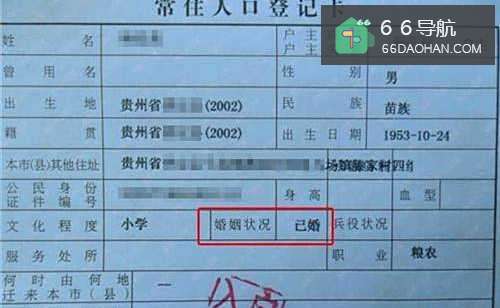 常住人口登记卡
66导航
66DAOHAN.COM
姓名 户主
户主
曾用名 性别 男
出生地 贵州省 (2002) 民族 苗族
籍贯 贵州省 (2002) 出生日期 1953-10-24
本市(县)其他住址 贵州省 场镇滕家村四组
公民身份
证件编号 身高 血型
文化程度 小学 婚姻状况 已婚 兵役状况
服务处所 职业 粮农
何时由何地
迁来本市(县) 一